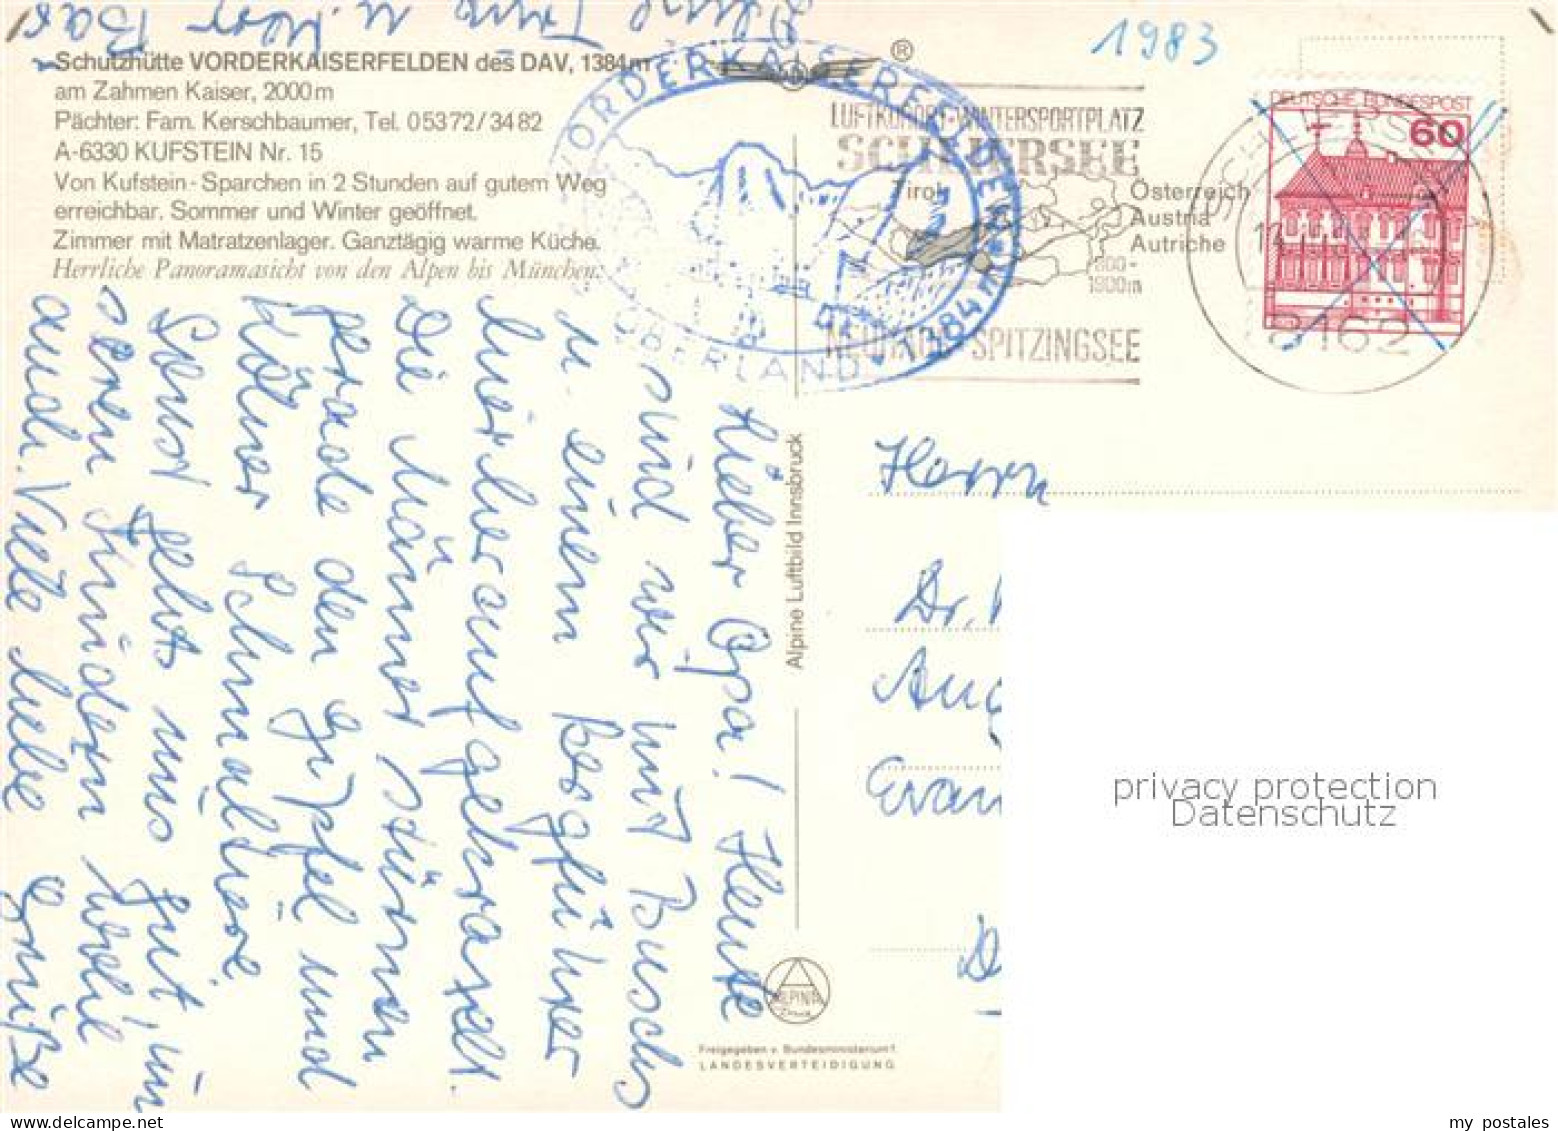 1983
Schutzhütte VORDERKAISERFELDEN des DAV, 1384m
am Zahmen Kaiser, 2000m
Pächter: Fam. Kerschbaumer, Tel. 05372/3482
A-6330 KUFSTEIN Nr. 15
Von Kufstein-Sparchen in 2 Stunden auf gutem Weg
erreichbar. Sommer und Winter geöffnet.
Zimmer mit Matratzenlager. Ganztägig warme Küche.
Herrliche Panoramasicht von den Alpen bis München.
VORDERKAISERFELDEN 1384m
OBERLAND
®
LUFTKURORT-WINTERSPORTPLATZ
SCHLIERSEE
Tirol
Österreich
Austria
Autriche
800-
1900m
NEUHAUS SPITZINGSEE
DEUTSCHE BUNDESPOST
60
8162
Lieber Opa! Heute
sind wir mit Buschs
u. einem Bergführer
hier heraufgekraxelt.
Die Männer stürmen
grade den Gipfel und
Kölner Schmaltiere.
Sonst gehts uns gut, im
den Kindern wohl
auch. Viele liebe Grüße
Alpine Luftbild Innsbruck
Herrn
Dr.
ALPINA
Freigegeben v. Bundesministerium f.
LANDESVERTEIDIGUNG
privacy protection
Datenschutz
my postales